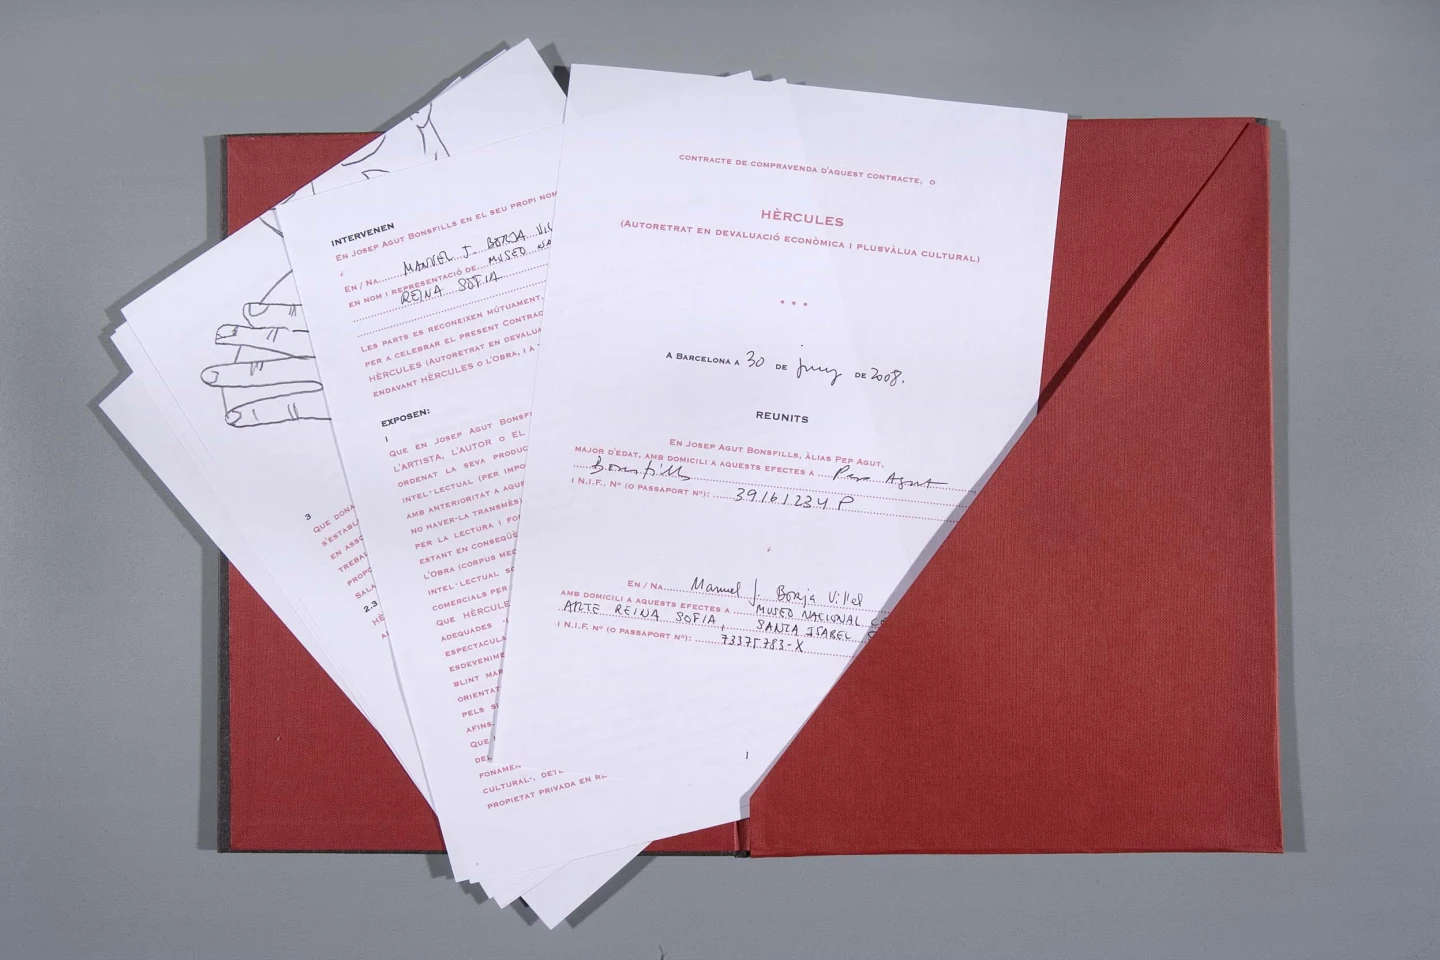 CONTRACTE DE COMPRAVENDA D'AQUEST CONTRACTE, O
HÈRCULES
(AUTORETRAT EN DEVALUACIÓ ECONÒMICA I PLUSVÀLUA CULTURAL)
A BARCELONA A 30 DE juny DE 2008.
REUNITS
EN JOSEP AGUT BONSFILLS, ÀLIAS PEP AGUT,
MAJOR D'EDAT, AMB DOMICILI A AQUESTS EFECTES A Pep Agut
Bonsfills
I N.I.F., Nº (O PASSAPORT Nº): 39161234 P
EN / NA Manuel J. Borja Villel
AMB DOMICILI A AQUESTS EFECTES A MUSEO NACIONAL
ARTE REINA SOFIA, SANTA ISABEL
I N.I.F. Nº (O PASSAPORT Nº): 73375783-X
1
INTERVENEN
EN JOSEP AGUT BONSFILLS EN EL SEU PROPI NOM
I
EN / NA MANUEL J. BORJA VIL
EN NOM I REPRESENTACIÓ DE MUSEO NA
REINA SOFIA
LES PARTS ES RECONEIXEN MÚTUAMENT,
PER A CELEBRAR EL PRESENT CONTRAC
HÈRCULES (AUTORETRAT EN DEVALUA
ENDAVANT HÈRCULES O L'OBRA, I A
EXPOSEN:
I
QUE EN JOSEP AGUT BONSF
L'ARTISTA, L'AUTOR O EL
ORDENAT LA SEVA PRODUC
INTEL·LECTUAL (PER IMPO
AMB ANTERIORITAT A AQUE
NO HAVER-LA TRANSMÈS)
PER LA LECTURA I FO
ESTANT EN CONSEQÜÈ
L'OBRA (CORPUS MEC
INTEL·LECTUAL SO
COMERCIALS PER
QUE HÈRCULE
ADEQUADES
ESPECTACULA
ESDEVENIME
BLINT MAR
ORIENTAT
PELS SE
AFINS.
QUE
DEL
FONAMEN
CULTURAL", DETE
PROPIETAT PRIVADA EN RE
3
QUE DONA
S'ESTABL
EN ASSO
TREBA
PROPO
SALA
2.3
HÈ